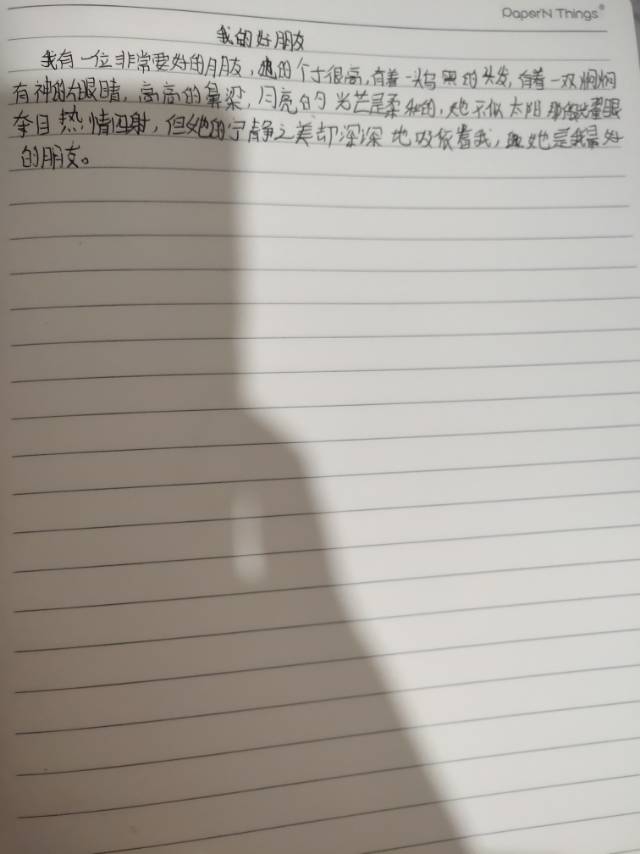 PaperN Things
我的好朋友
我有一位非常要好的朋友，她的个子很高，有着一头乌黑的头发，有着一双炯炯
有神的大眼睛，高高的鼻梁，月亮的光芒是柔和的，她不似太阳那般耀眼
夺目热情四射，但她的宁静之美却深深地吸依着我，她是我最好
的朋友。